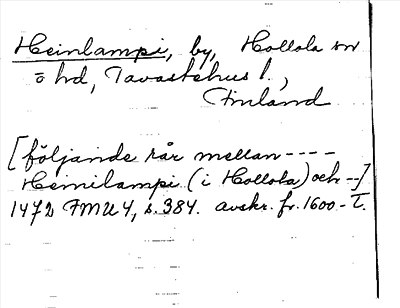 Heinlampi, by, Hollola sn
o hd, Tavastehus l.,
Finland
[följande rår mellan ----
Hemilampi (i Hollola) och --]
1472 FMU 4, s. 384. avskr. fr. 1600-t.